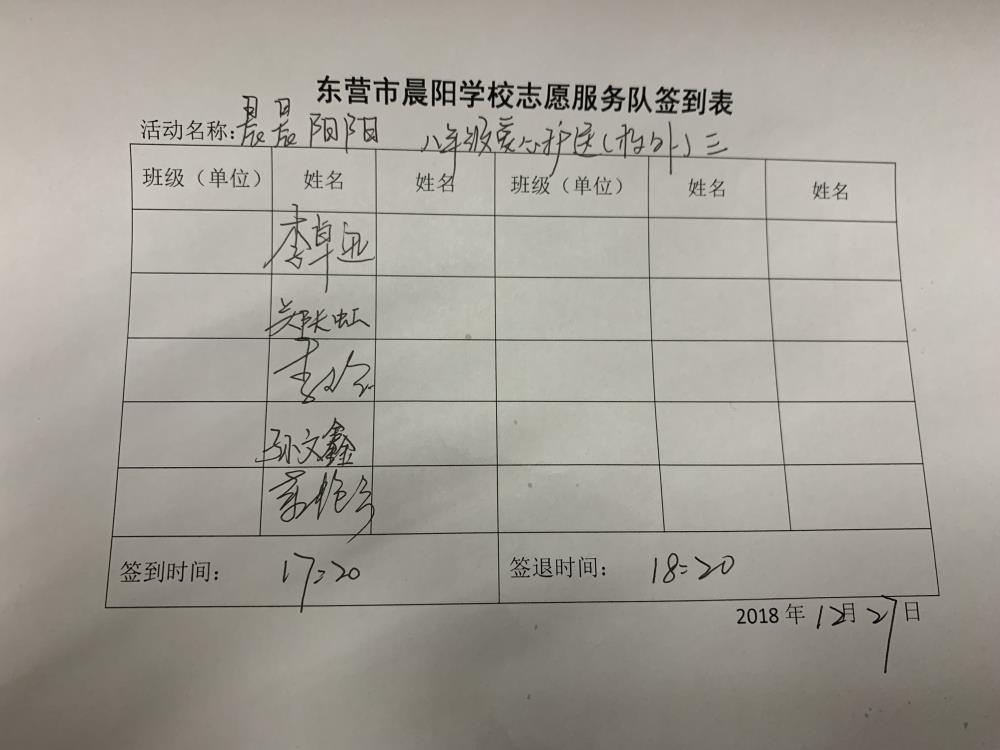 东营市晨阳学校志愿服务队签到表
活动名称:晨晨阳阳 八年级爱心护送(校外)三
班级（单位） 姓名 姓名 班级（单位） 姓名 姓名
李卓迅
孙文鑫
签到时间： 17:20 签退时间： 18:20
2018 年 12月 27日